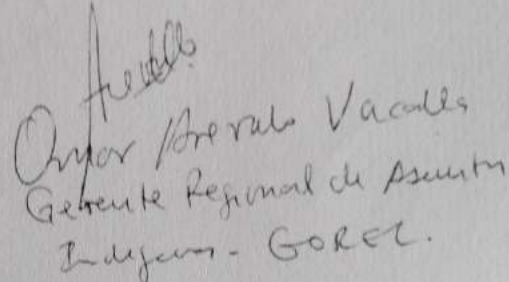 Omar Arevalo Vacalla
Gerente Regional de Asuntos
Indígenas - GOREL.